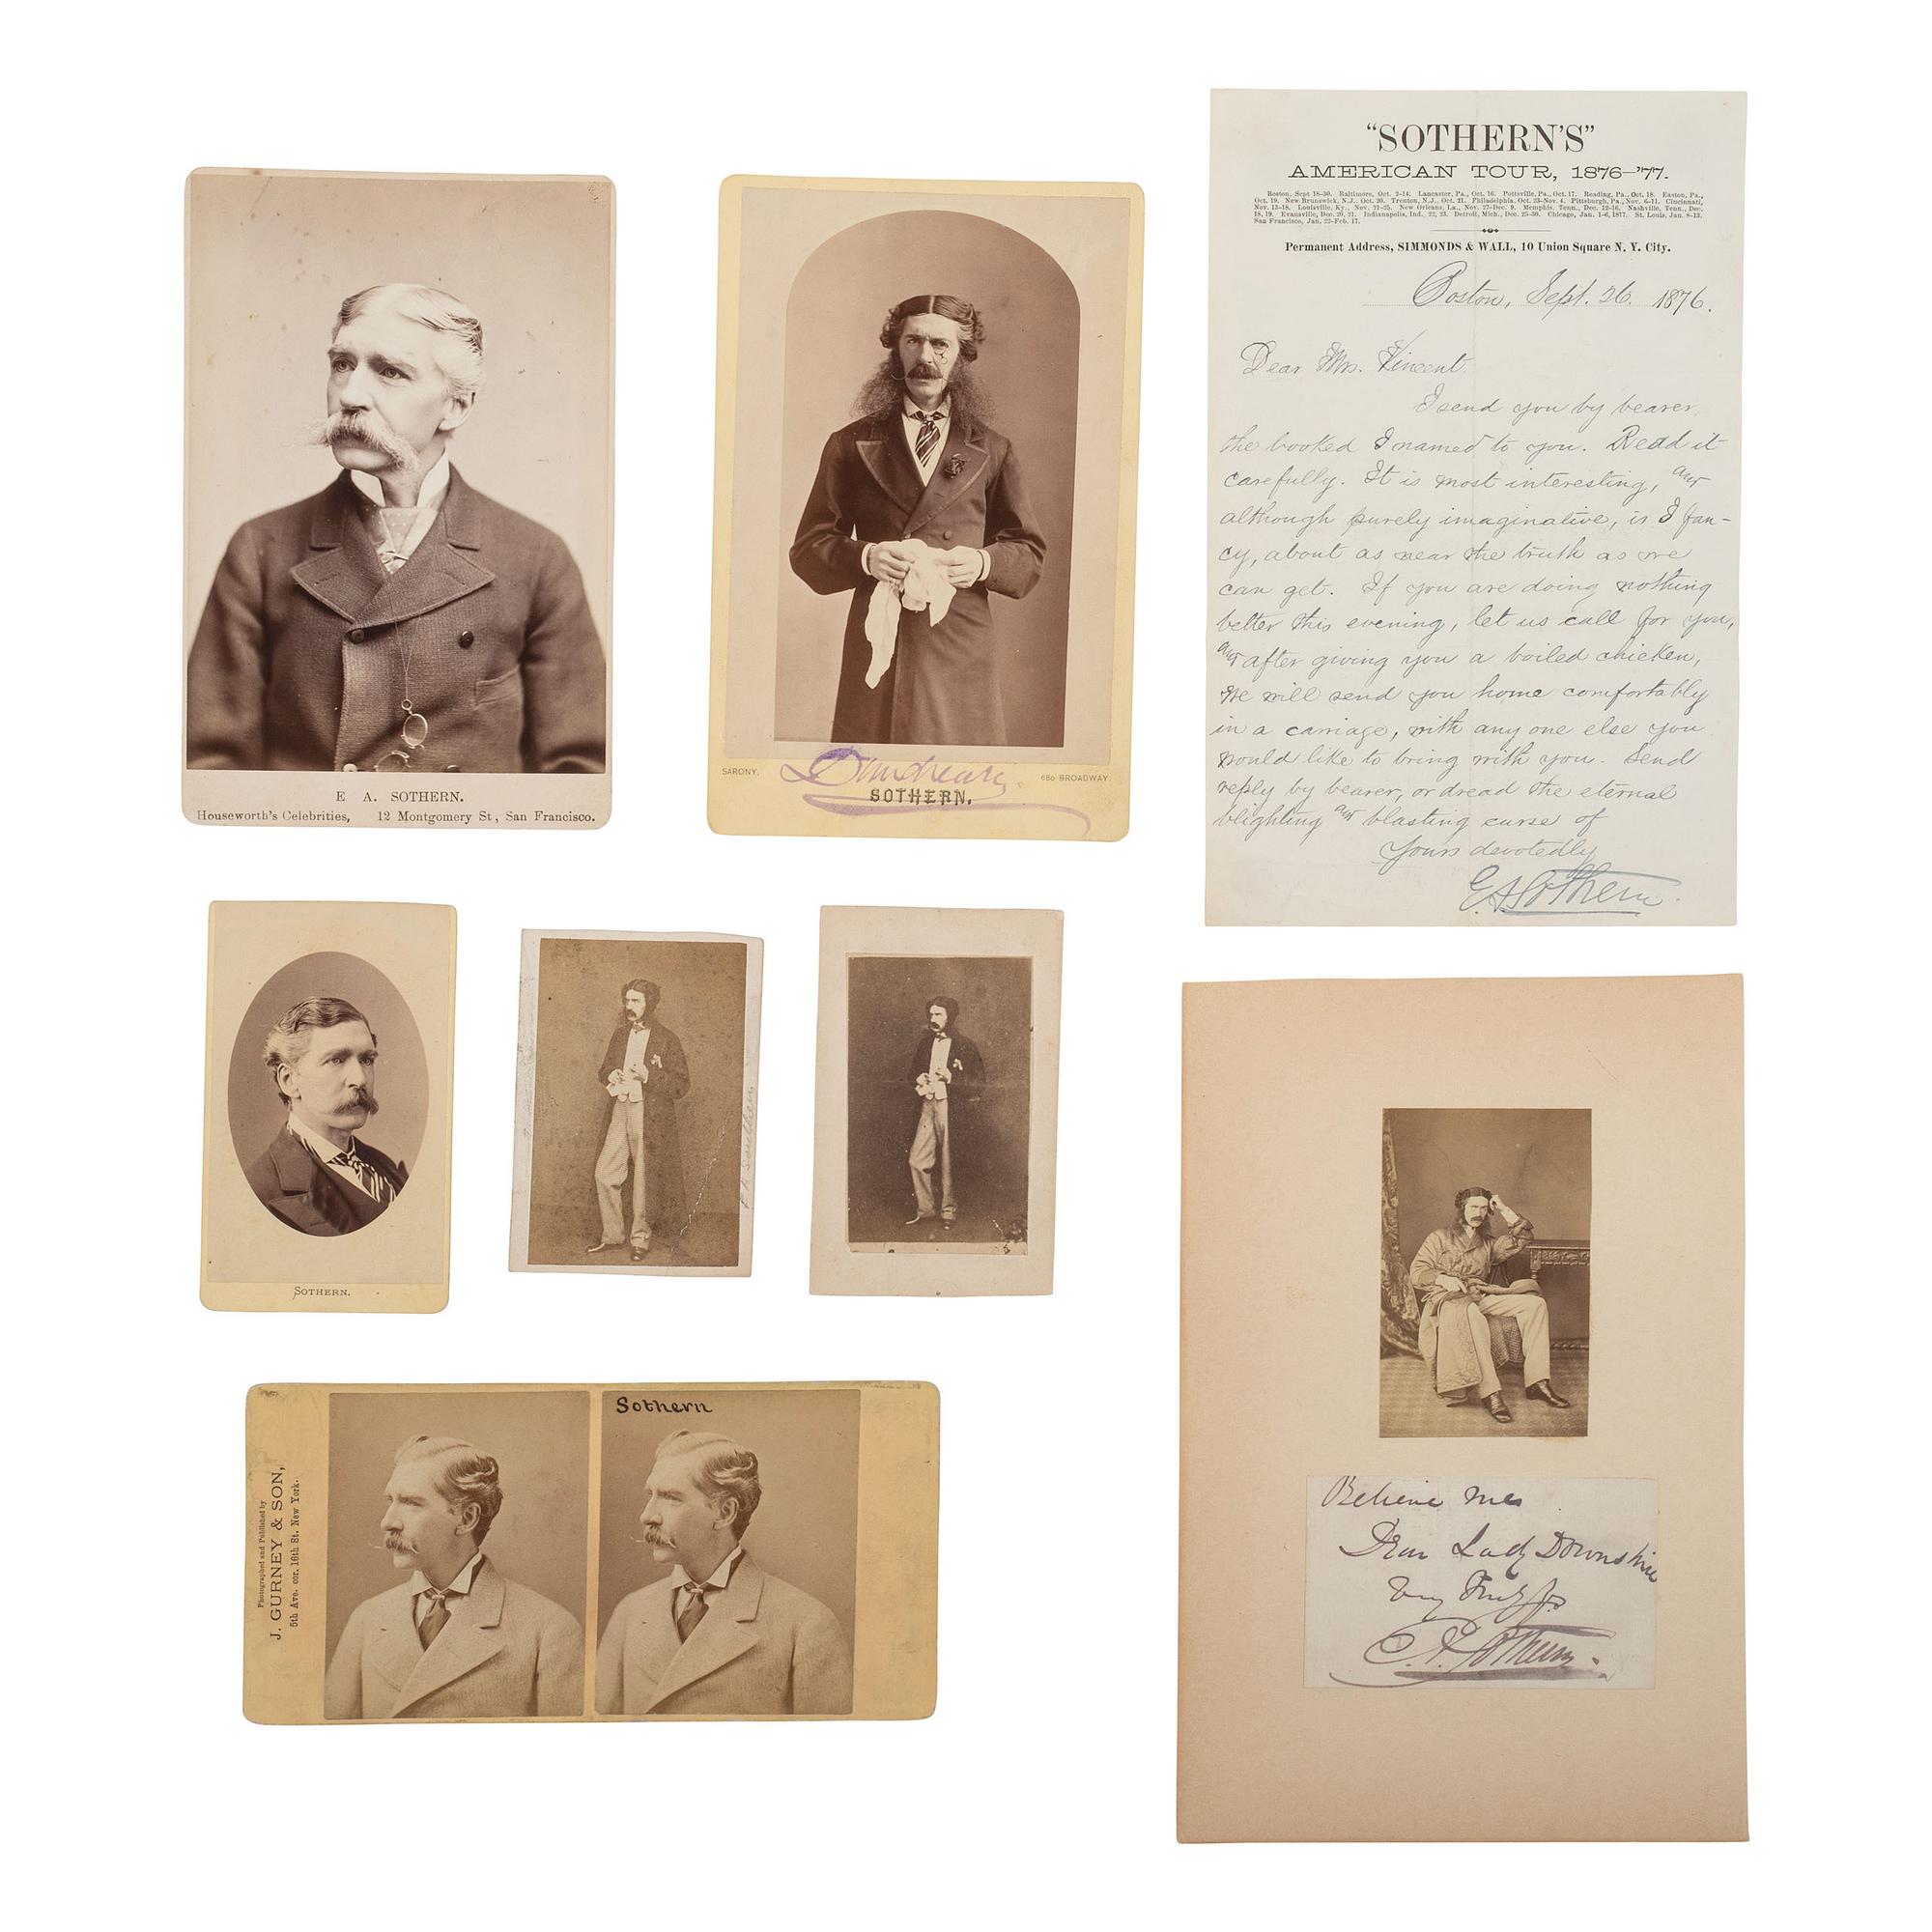 E A. SOTHERN.
Houseworth's Celebrities, 12 Montgomery St, San Francisco.
SARONY.
Dundreary
680 BROADWAY
SOTHERN.
"SOTHERN'S"
AMERICAN TOUR, 1876–'77.
Boston, Sept 18-30. Baltimore, Oct. 2-14. Lancaster, Pa., Oct. 16. Pottsville, Pa., Oct. 17. Reading, Pa., Oct. 18. Easton, Pa.,
Oct. 19. New Brunswick, N.J., Oct. 20. Trenton, N.J., Oct. 21. Philadelphia, Oct. 23-Nov. 4. Pittsburg, Pa., Nov. 6-11. Cincinnati,
Nov. 13-18. Louisville, Ky., Nov. 21-25. New Orleans, La., Nov. 27-Dec. 9. Memphis, Tenn., Dec. 12-16. Nashville, Tenn., Dec.
18, 19. Evansville, Dec. 20, 21. Indianapolis, Ind., 22, 23. Detroit, Mich., Dec. 25-30. Chicago, Jan. 1-6, 1877. St. Louis, Jan. 8-13.
San Francisco, Jan. 22-Feb. 17.
Permanent Address, SIMMONDS & WALL, 10 Union Square N. Y. City.
Boston, Sept. 26. 1876.
Dear Mrs. Vincent.
I send you by bearer,
the booked I named to you. Read it
carefully. It is most interesting, and
although purely imaginative, is I fan-
cy, about as near the truth as we
can get. If you are doing nothing
better this evening, let us call for you,
and after giving you a boiled chicken,
we will send you home comfortably
in a carriage, with any one else you
would like to bring with you. Send
reply by bearer, or dread the eternal
blighting and blasting curse of
Yours devotedly
E A Sothern.
SOTHERN.
E A Southern
Photographed and Published by
J. GURNEY & SON,
5th Ave. cor. 16th St. New York.
Sothern
Believe me
Dear Lady Downshire
Very
E. A. Sothern.